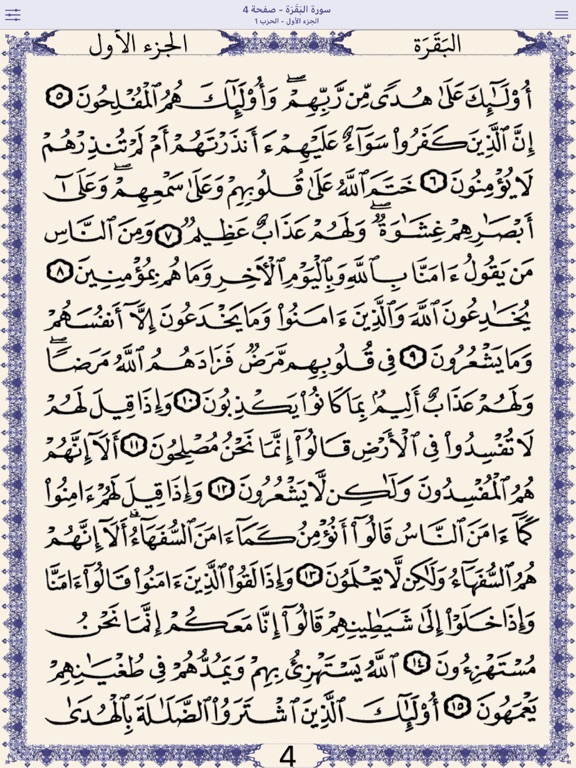 سورة البَقَرَة - صفحة 4
الجزء الأول - الحزب 1
البَقَرَة
الجزء الأول
أُوْلَٰٓئِكَ عَلَىٰ هُدٗى مِّن رَّبِّهِمۡۖ وَأُوْلَٰٓئِكَ هُمُ ٱلۡمُفۡلِحُونَ ٥
إِنَّ ٱلَّذِينَ كَفَرُواْ سَوَآءٌ عَلَيۡهِمۡ ءَأَنذَرۡتَهُمۡ أَمۡ لَمۡ تُنذِرۡهُمۡ
لَا يُؤۡمِنُونَ ٦ خَتَمَ ٱللَّهُ عَلَىٰ قُلُوبِهِمۡ وَعَلَىٰ سَمۡعِهِمۡۖ وَعَلَىٰٓ
أَبۡصَٰرِهِمۡ غِشَٰوَةٞۖ وَلَهُمۡ عَذَابٌ عَظِيمٞ ٧ وَمِنَ ٱلنَّاسِ
مَن يَقُولُ ءَامَنَّا بِٱللَّهِ وَبِٱلۡيَوۡمِ ٱلۡأٓخِرِ وَمَا هُم بِمُؤۡمِنِينَ ٨
يُخَٰدِعُونَ ٱللَّهَ وَٱلَّذِينَ ءَامَنُواْ وَمَا يَخۡدَعُونَ إِلَّآ أَنفُسَهُمۡ
وَمَا يَشۡعُرُونَ ٩ فِي قُلُوبِهِم مَّرَضٞ فَزَادَهُمُ ٱللَّهُ مَرَضٗاۖ
وَلَهُمۡ عَذَابٌ أَلِيمُۢ بِمَا كَانُواْ يَكۡذِبُونَ ١٠ وَإِذَا قِيلَ لَهُمۡ
لَا تُفۡسِدُواْ فِي ٱلۡأَرۡضِ قَالُوٓاْ إِنَّمَا نَحۡنُ مُصۡلِحُونَ ١١ أَلَآ إِنَّهُمۡ
هُمُ ٱلۡمُفۡسِدُونَ وَلَٰكِن لَّا يَشۡعُرُونَ ١٢ وَإِذَا قِيلَ لَهُمۡ ءَامِنُواْ
كَمَآ ءَامَنَ ٱلنَّاسُ قَالُوٓاْ أَنُؤۡمِنُ كَمَآ ءَامَنَ ٱلسُّفَهَآءُۗ أَلَآ إِنَّهُمۡ
هُمُ ٱلسُّفَهَآءُ وَلَٰكِن لَّا يَعۡلَمُونَ ١٣ وَإِذَا لَقُواْ ٱلَّذِينَ ءَامَنُواْ قَالُوٓاْ ءَامَنَّا
وَإِذَا خَلَوۡاْ إِلَىٰ شَيَٰطِينِهِمۡ قَالُوٓاْ إِنَّا مَعَكُمۡ إِنَّمَا نَحۡنُ
مُسۡتَهۡزِءُونَ ١٤ ٱللَّهُ يَسۡتَهۡزِئُ بِهِمۡ وَيَمُدُّهُمۡ فِي طُغۡيَٰنِهِمۡ
يَعۡمَهُونَ ١٥ أُوْلَٰٓئِكَ ٱلَّذِينَ ٱشۡتَرَوُاْ ٱلضَّلَٰلَةَ بِٱلۡهُدَىٰ
4